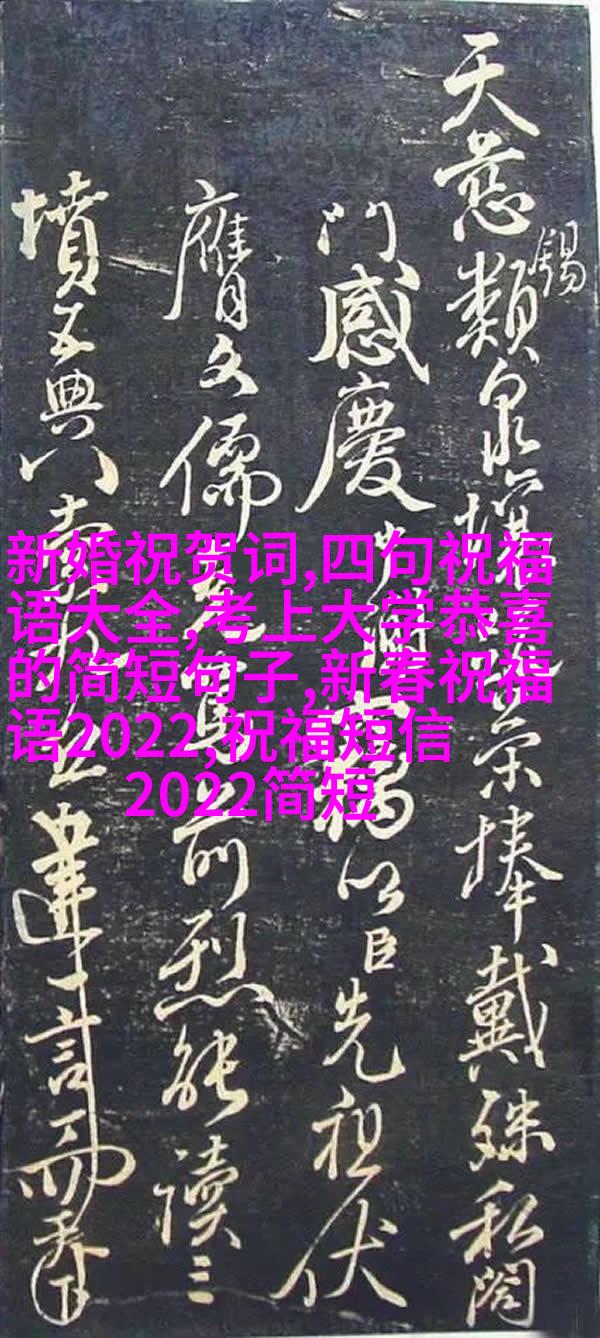 天慈類錫泉壤榮捧戴殊私闔
門感慶以臣先祖伏
膺文儒前烈能讀三
墳五典八
新婚祝贺词,四句祝福
语大全,考上大学恭喜
的简短句子,新春祝福
语2022,祝福短信
2022简短